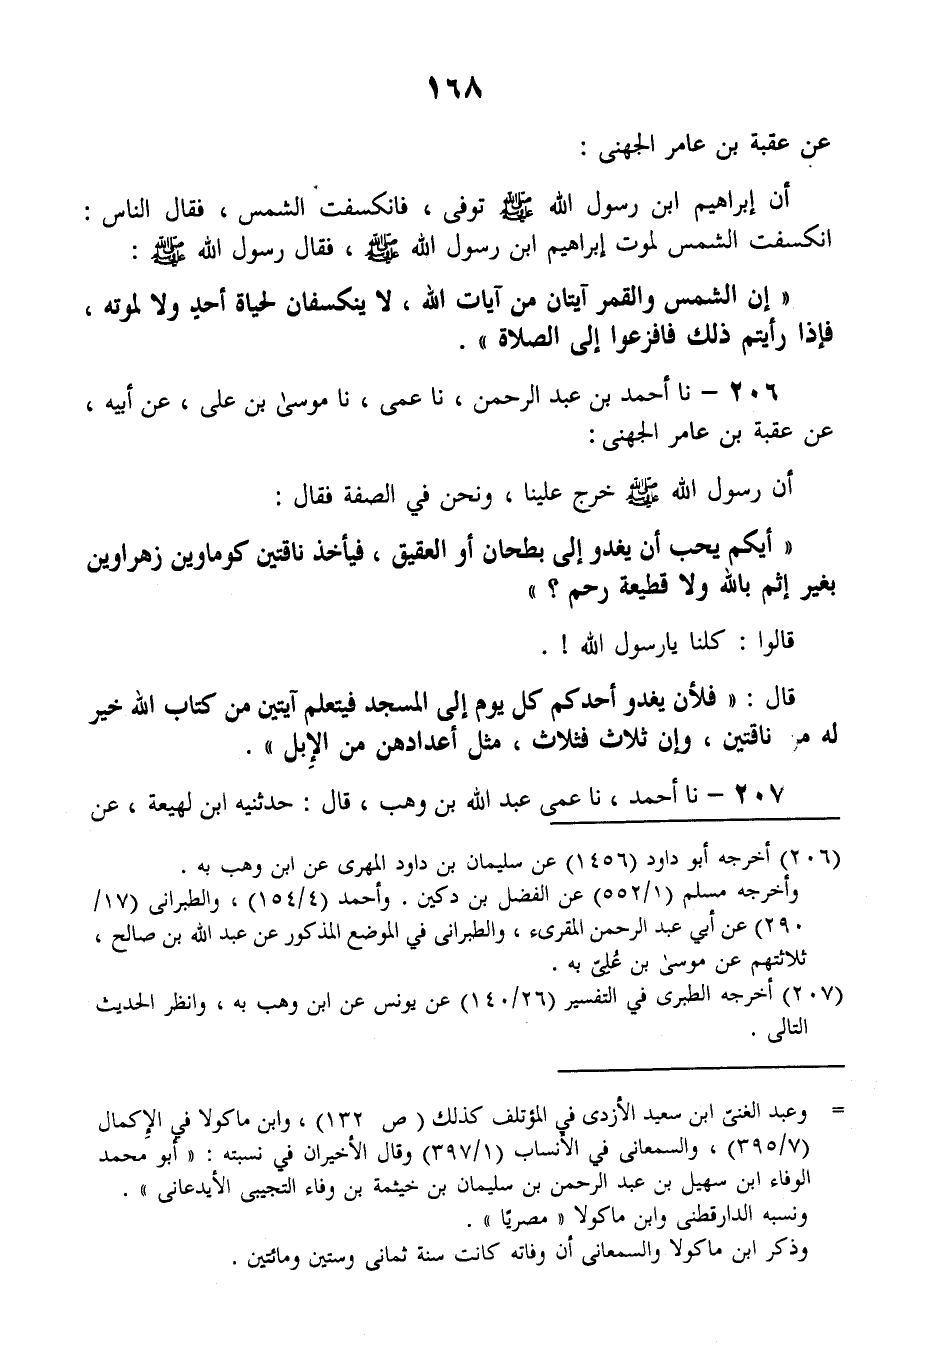 ١٦٨
عن عقبة بن عامر الجهنى :
أن إبراهيم ابن رسول الله ﷺ توفى ، فانكسفت الشمس ، فقال الناس :
انكسفت الشمس لموت إبراهيم ابن رسول الله ﷺ ، فقال رسول الله ﷺ :
« إن الشمس والقمر آيتان من آيات الله ، لا ينكسفان لحياة أحدٍ ولا لموته ،
فإذا رأيتم ذلك فافزعوا إلى الصلاة » .
٢٠٦ – نا أحمد بن عبد الرحمن ، نا عمى ، نا موسىٰ بن على ، عن أبيه ،
عن عقبة بن عامر الجهنى :
أن رسول الله ﷺ خرج علينا ، ونحن في الصفة فقال :
« أيكم يحب أن يغدو إلى بطحان أو العقيق ، فيأخذ ناقتين كوماوين زهراوين
بغير إثم بالله ولا قطيعة رحم ؟ »
قالوا : كلنا يارسول الله ! .
قال : « فلأن يغدو أحدكم كل يوم إلى المسجد فيتعلم آيتين من كتاب الله خير
له من ناقتين ، وإن ثلاث فثلاث ، مثل أعدادهن من الإِبل » .
٢٠٧ – نا أحمد ، نا عمى عبد الله بن وهب ، قال : حدثنيه ابن لهيعة ، عن
(٢٠٦) أخرجه أبو داود (١٤٥٦) عن سليمان بن داود المهرى عن ابن وهب به .
وأخرجه مسلم (٥٥٢/١) عن الفضل بن دكين . وأحمد (١٥٤/٤) ، والطبرانى (١٧/
٢٩٠) عن أبي عبد الرحمن المقرىء ، والطبرانى في الموضع المذكور عن عبد الله بن صالح ،
ثلاثتهم عن موسىٰ بن عُلىّ به .
(٢٠٧) أخرجه الطبرى في التفسير (١٤٠/٢٦) عن يونس عن ابن وهب به ، وانظر الحديث
التالى .
= وعبد الغنىّ ابن سعيد الأزدى في المؤتلف كذلك ( ص ١٣٢) ، وابن ماكولا في الإِكمال
(٣٩٥/٧) ، والسمعانى في الأنساب (٣٩٧/١) وقال الأخيران في نسبته : « أبو محمد
الوفاء ابن سهيل بن عبد الرحمن بن سليمان بن خيثمة بن وفاء التجيبى الأيدعانى » .
ونسبه الدارقطنى وابن ماكولا « مصريًا » .
وذكر ابن ماكولا والسمعانى أن وفاته كانت سنة ثمانى وستين ومائتين .